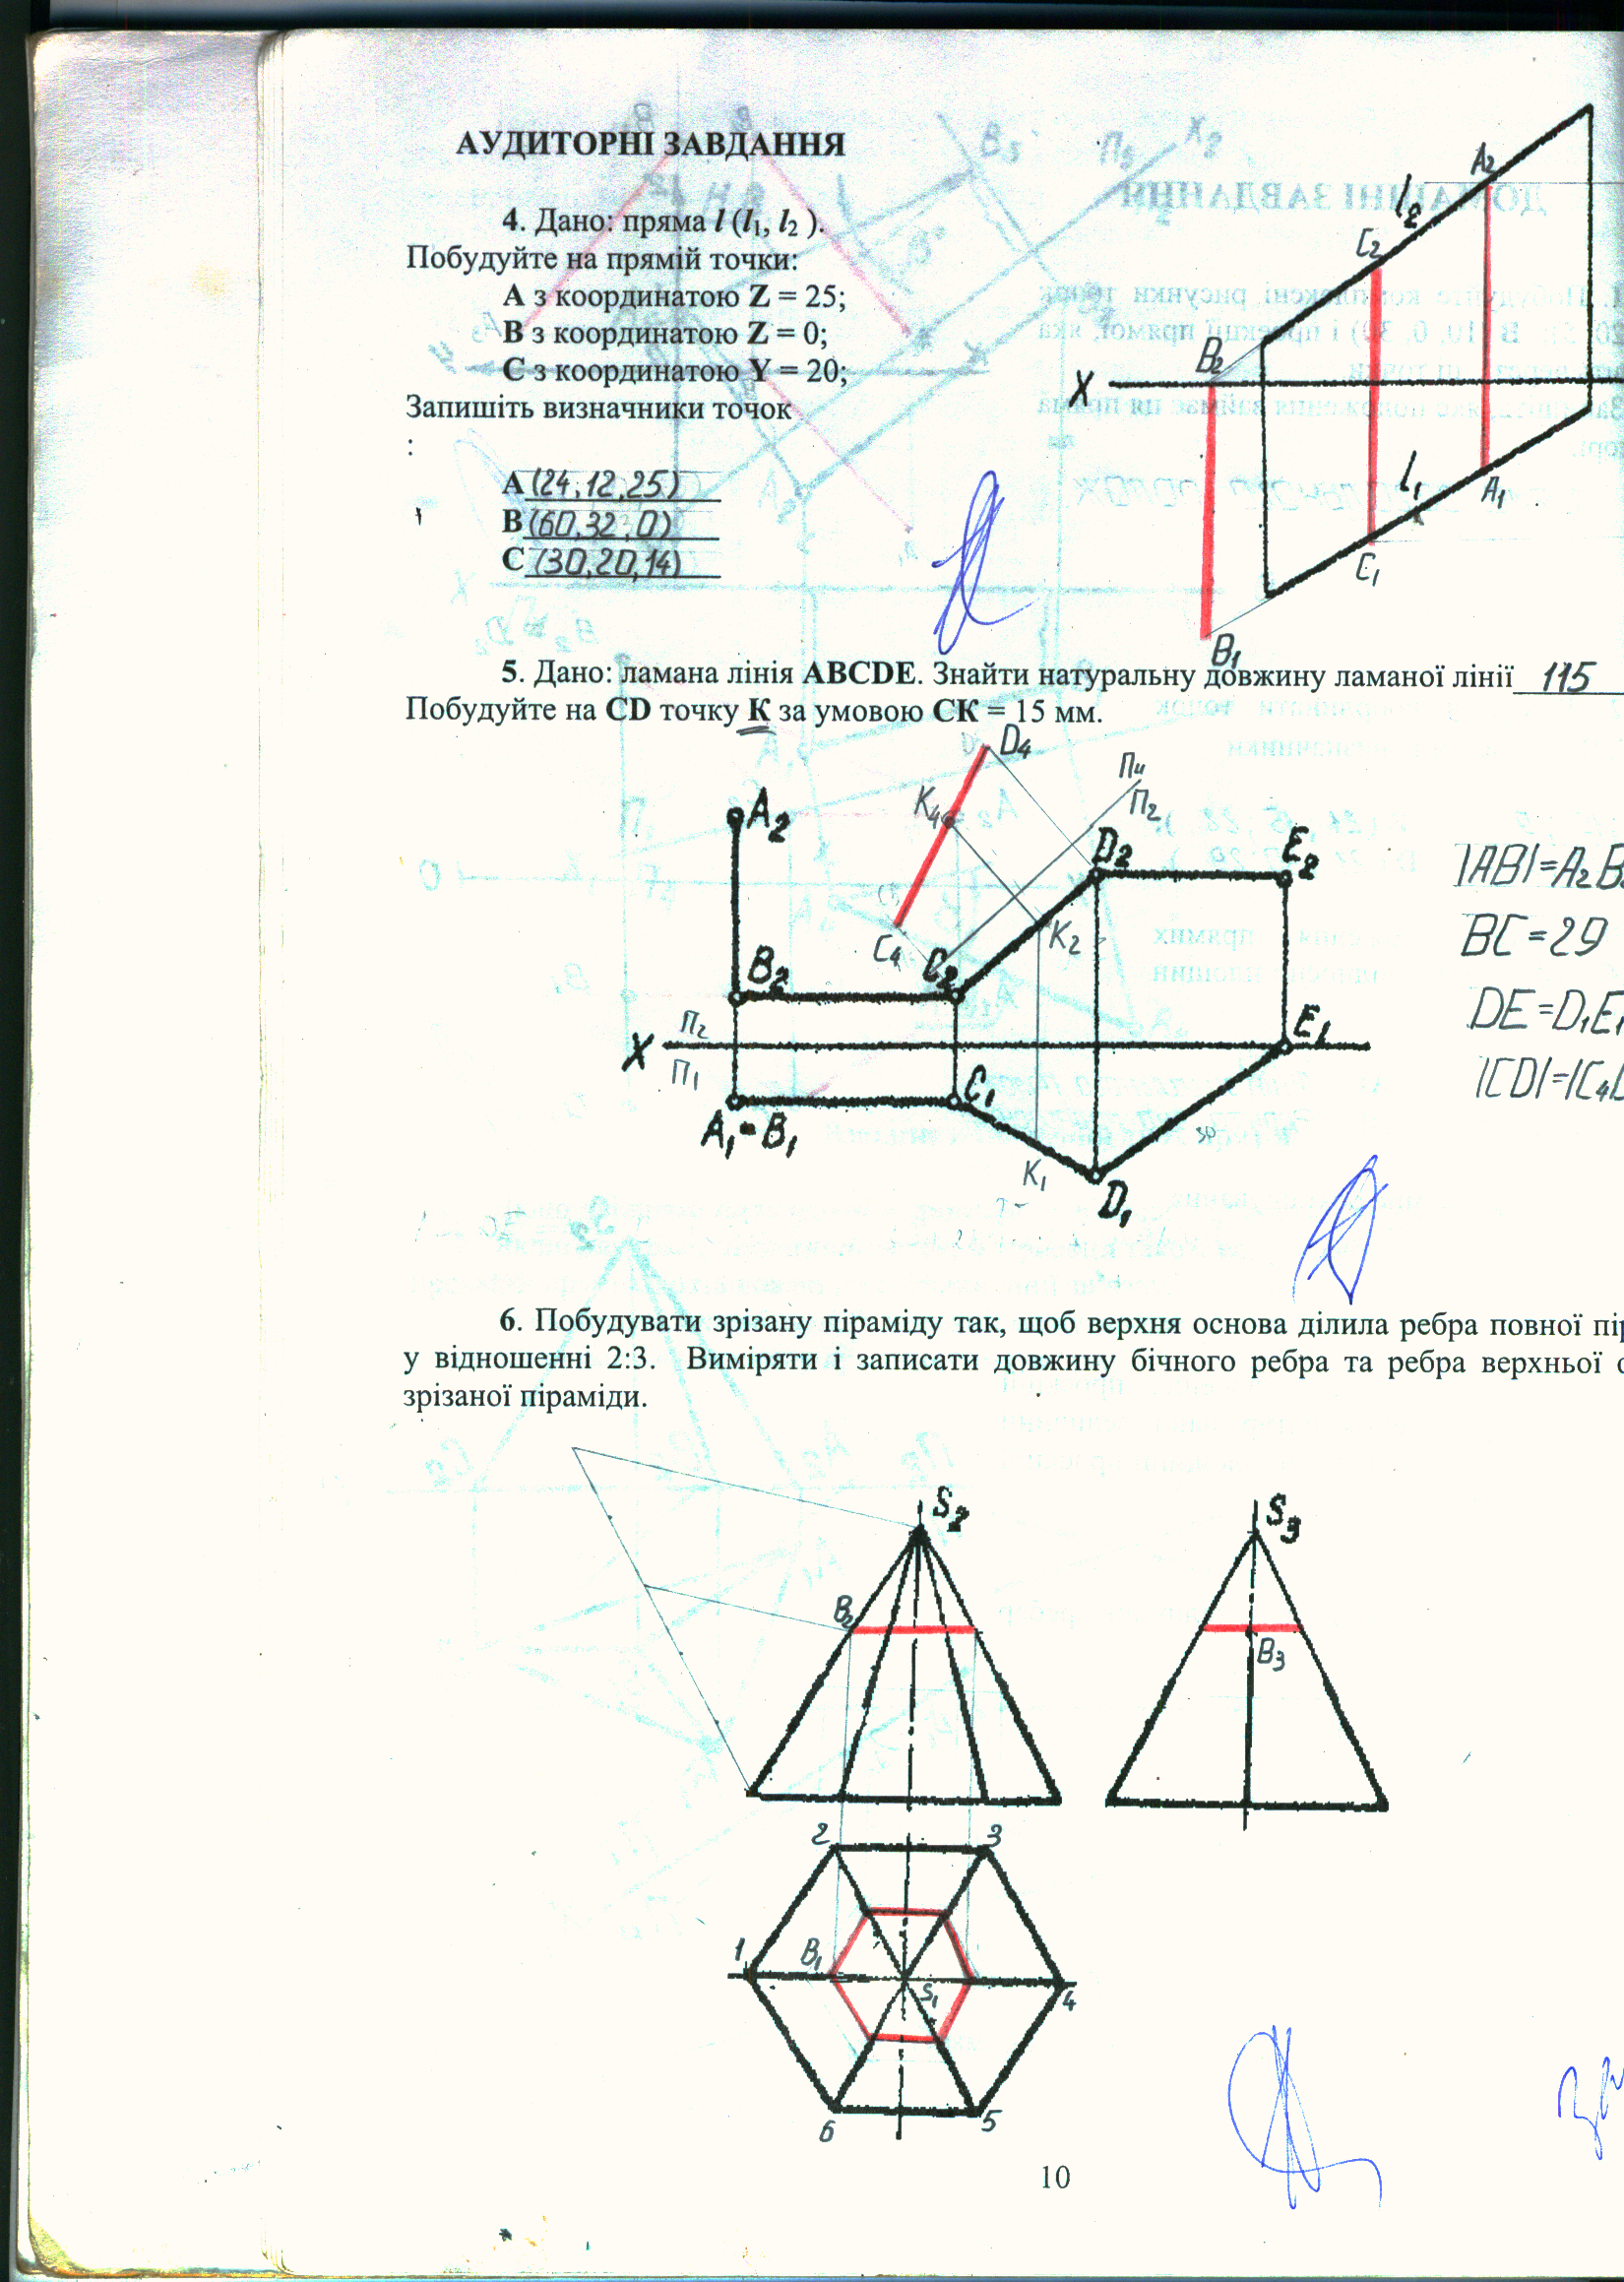 АУДИТОРНІ ЗАВДАННЯ
4. Дано: пряма l (l1, l2 ).
Побудуйте на прямій точки:
A з координатою Z = 25;
B з координатою Z = 0;
C з координатою Y = 20;
Запишіть визначники точок
:
A (24,12,25)
B (60,32,0)
C (30,20,14)
A2
l2
C2
B2
X
l1
A1
C1
B1
5. Дано: ламана лінія ABCDE. Знайти натуральну довжину ламаної лінії 115
Побудуйте на CD точку K за умовою CK = 15 мм.
D4
П4
П2
K4
A2
D2
E2
|AB|=A2B
C4
C2
K2
BC=29
B2
DE=D1E1
E1
X
П2
П1
|CD|=|C4D
C1
A1≡B1
30
K1
D1
6. Побудувати зрізану піраміду так, щоб верхня основа ділила ребра повної пір
у відношенні 2:3. Виміряти і записати довжину бічного ребра та ребра верхньої о
зрізаної піраміди.
S2
S3
B2
B3
2
3
1
B1
S1
4
6
5
10